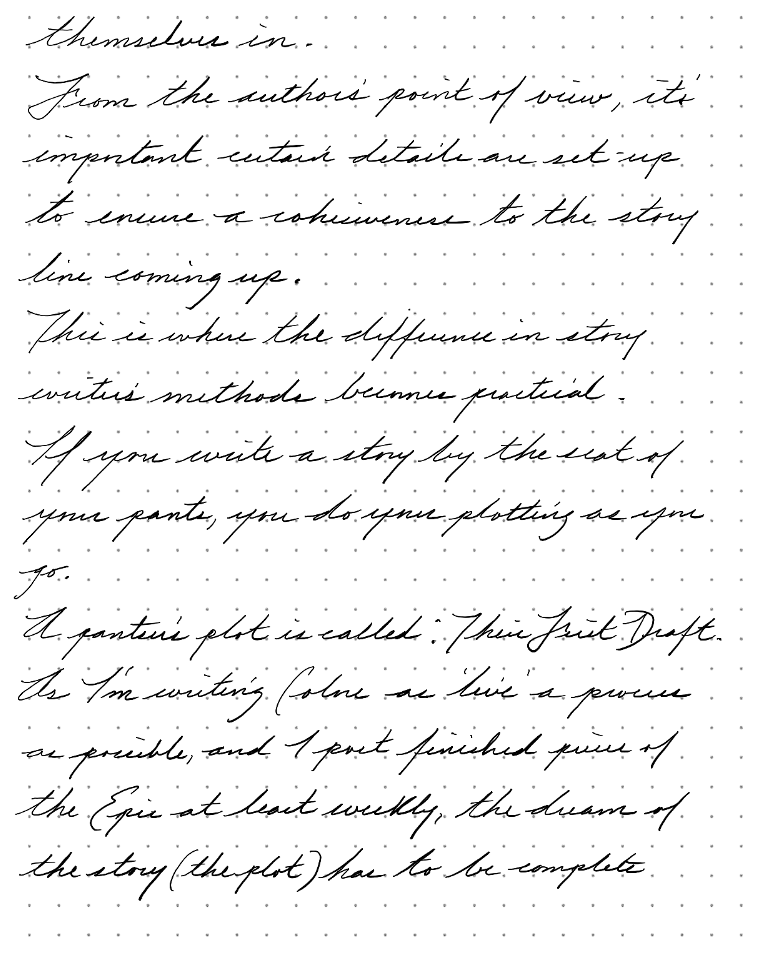 themselves in.
From the author's point of view, it's
important certain details are set-up
to ensure a cohesiveness to the story
line coming up.
This is where the difference in story
writer's methods becomes practical.
If you write a story by the seat of
your pants, you do your plotting as you
go.
A pantser's plot is called: Their First Draft.
As I'm writing Colne as 'live' a process
as possible, and I post finished pieces of
the Epic at least weekly, the dream of
the story (the plot) has to be complete